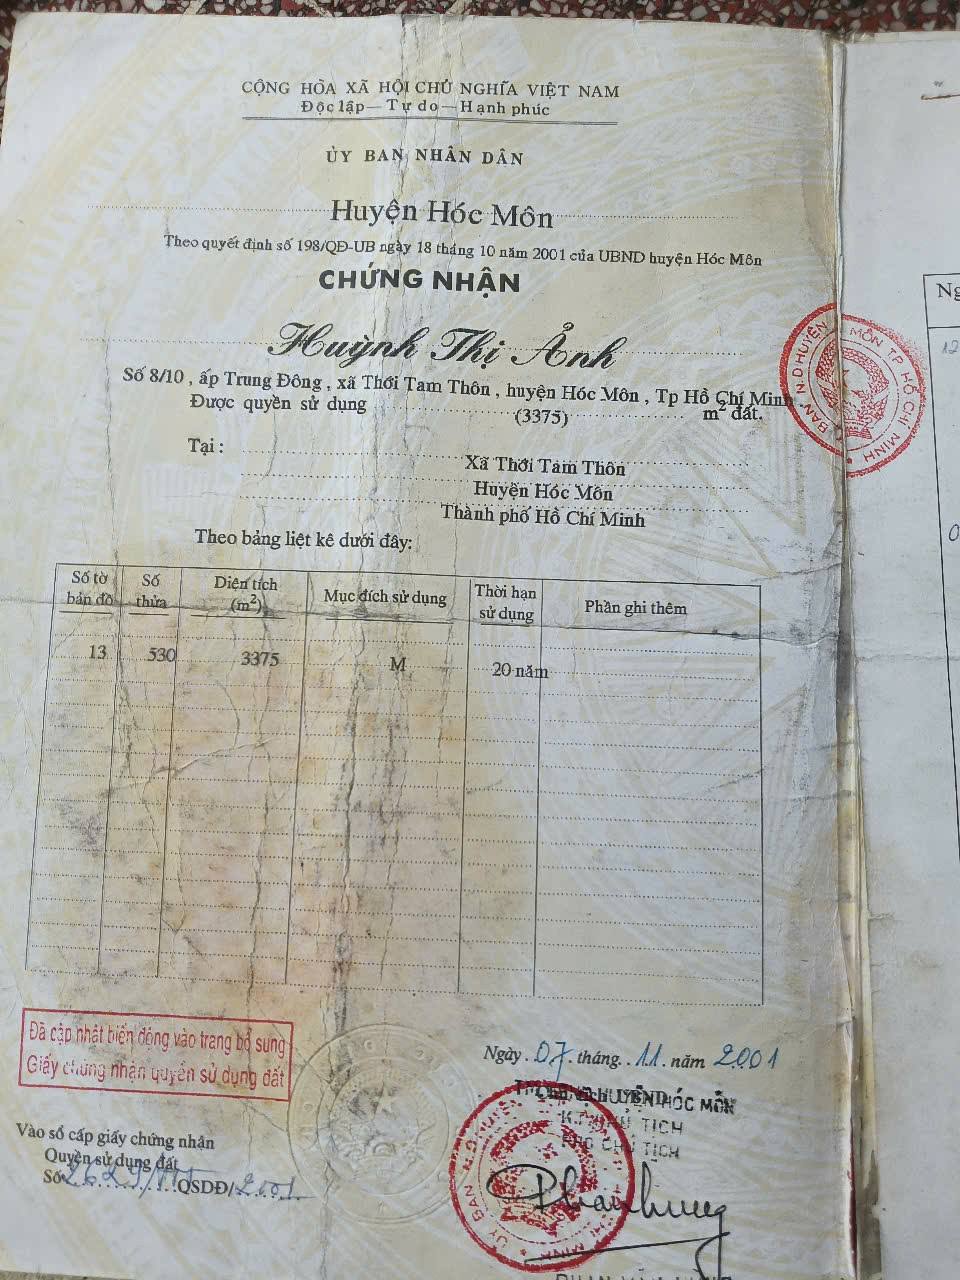 CỘNG HÒA XÃ HỘI CHỦ NGHĨA VIỆT NAM
Độc lập — Tự do — Hạnh phúc
ỦY BAN NHÂN DÂN
Huyện Hóc Môn
Theo quyết định số 198/QĐ-UB ngày 18 tháng 10 năm 2001 của UBND huyện Hóc Môn
CHỨNG NHẬN
Huỳnh Thị Ảnh
Số 8/10 , ấp Trung Đông , xã Thới Tam Thôn , huyện Hóc Môn , Tp Hồ Chí Minh .
Được quyền sử dụng (3375) m² đất.
Tại :
Xã Thới Tam Thôn
Huyện Hóc Môn
Thành phố Hồ Chí Minh
Theo bảng liệt kê dưới đây:
Số tờ bản đồ Số thửa Diện tích (m²) Mục đích sử dụng Thời hạn sử dụng Phần ghi thêm
13 530 3375 M 20 năm
Đã cập nhật biến động vào trang bổ sung
Giấy chứng nhận quyền sử dụng đất
Ngày 07 tháng 11 năm 2001
HÓC MÔN
CHỦ TỊCH
PHÓ CHỦ TỊCH
Vào sổ cấp giấy chứng nhận
Quyền sử dụng đất
Số QSDĐ/2001
Ng
12